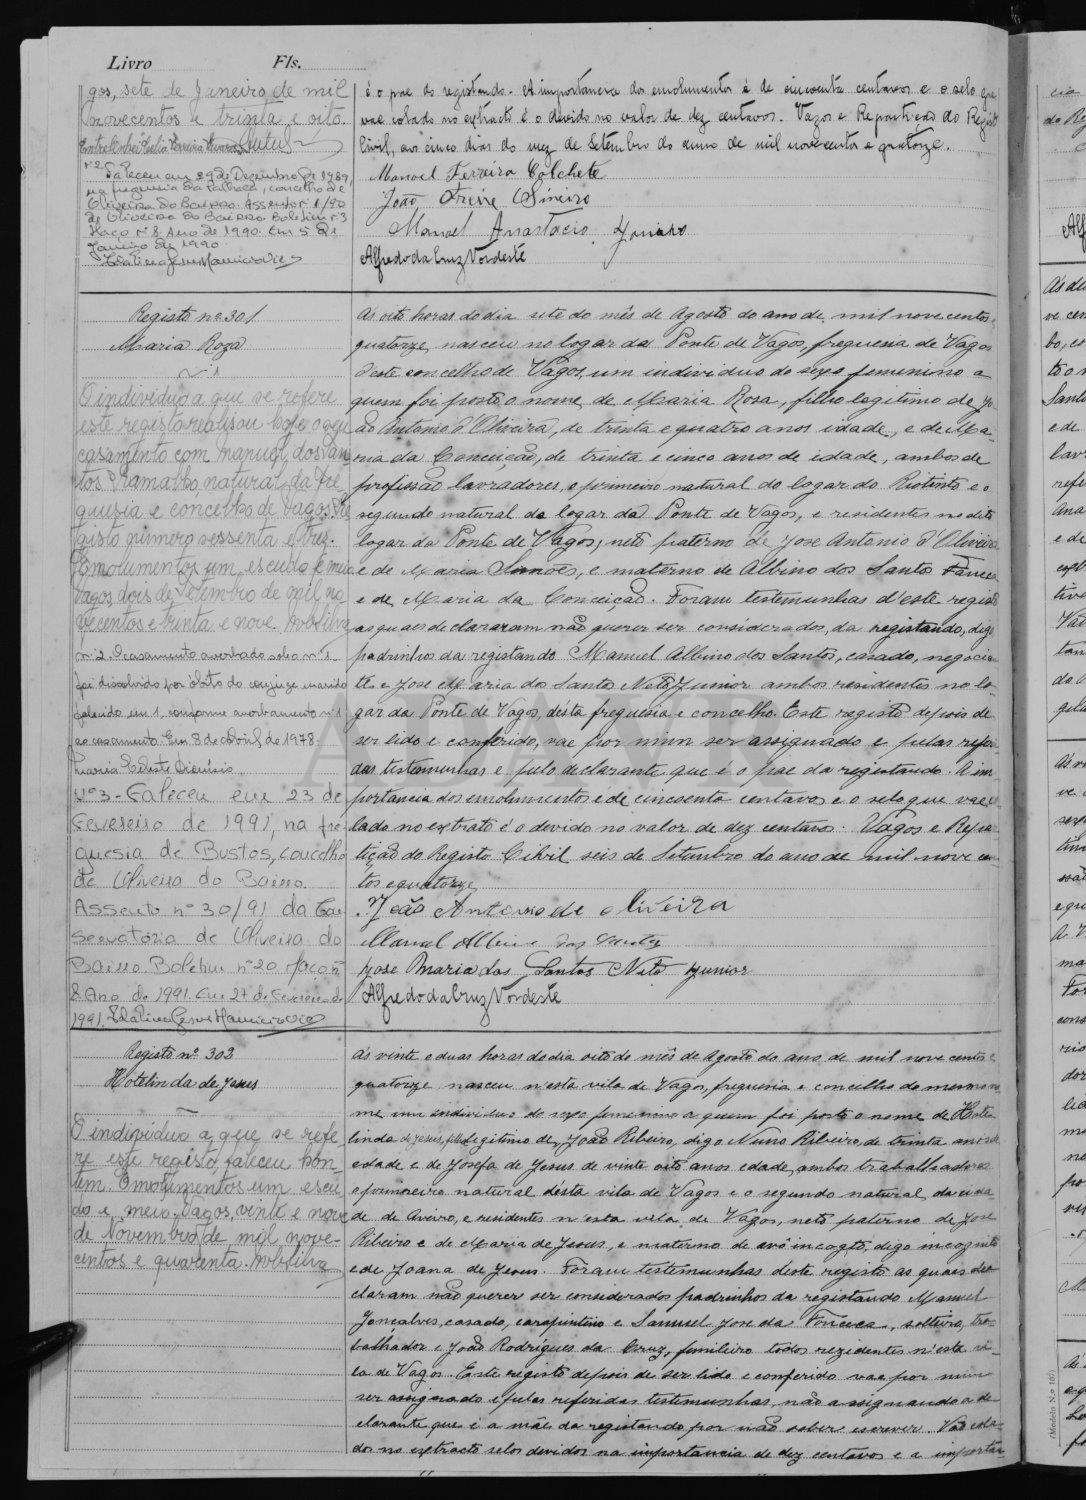 Livro Fls.
gos, sete de Janeiro de mil
novecentos e trinta e oito.
Nº 2 Faleceu em 29 de Dezembro de 1989,
na freguesia da Palhaça, concelho de
Oliveira do Bairro. Assento nº 1/90
de Oliveira do Bairro. Boletim nº 3
Maço nº 8. Ano de 1990. Em 5 de
Janeiro de 1990
é o pae do registando. A importancia dos emolumentos é de cincoenta centavos e o selo que
vae colado no extracto é o devido no valor de dez centavos. Vagos e Repartição do Registo
Civil, aos cinco dias do mez de Setembro do anno de mil novecentos e quatorze.
Manoel Ferreira Colchete
João Freire Sineiro
Manoel Anastacio
Alfredo da Cruz Nordeste
Registo nº 301
Maria Roza
Nº 1
O individuo a que se refere
este registo realisou hoje o seu
casamento com Manuel dos San-
tos Ramalho, natural da fre-
guesia e concelho de Vagos. Re-
gisto numero sessenta e tres.
Emolumentos um escudo e meio
Vagos dois de Setembro de mil no-
vecentos e trinta e nove.
nº 2. O casamento averbado sob o nº 1
foi dissolvido por óbito do conjuge marido
falecido em 1, conforme averbamento nº 1
ao casamento. Em 3 de Abril de 1978.
Maria Celeste Dionísio
Nº 3 - Faleceu em 23 de
Fevereiro de 1991, na fre-
guesia de Bustos, concelho
de Oliveira do Bairro.
Assento nº 30/91 da Con-
servatória de Oliveira do
Bairro. Boletim nº 20. Maço nº
8. Ano de 1991. Em 27 de Fevereiro de
1991.
As oito horas do dia sete do mês de Agosto do ano de mil novecentos e
quatorze, nasceu no logar da Ponte de Vagos, freguesia de Vagos
d'este concelho de Vagos, um individuo do sexo feminino a
quem foi posto o nome de Maria Rosa, filho legitimo de Jo-
ão Antonio d'Oliveira, de trinta e quatro anos idade, e de Ma-
ria da Conceição, de trinta e cinco anos de idade, ambos de
profissão lavradores, o primeiro natural do logar do Riotinto e o
segundo natural do logar da Ponte de Vagos, e residentes no dito
logar da Ponte de Vagos, neto paterno de Jose Antonio d'Oliveira
e de Maria Simões, e materno de Albino dos Santos
e de Maria da Conceição. Foram testemunhas d'este registo
as quaes declararam não querer ser considerados, da registando, digo
padrinhos da registando Manuel Albino dos Santos, casado, negocian-
te e Jose Maria dos Santos Neto Junior ambos residentes no lo-
gar da Ponte de Vagos, désta freguesia e concelho. Este registo depois de
ser lido e conferido, vae por mim ser assignado e pelas referi-
das testemunhas e pelo declarante que é o pae da registando. A im-
portancia dos emolumentos é de cincoenta centavos e o selo que vae co-
lado no extrato é o devido no valor de dez centavos. Vagos e Repar-
tição do Registo Civil, seis de Setembro do ano de mil novecen-
tos e quatorze.
João Antonio de oliveira
Manuel Albino dos Santos
Jose Maria dos Santos Neto Junior
Alfredo da Cruz Nordeste
Registo nº 302
Hotelinda de Jesus
O individuo a que se refe-
re este registo, faleceu hon-
tem. Emolumentos um escu-
do e meio. Vagos, vinte e nove
de Novembro de mil nove-
centos e quarenta.
Ás vinte e duas horas do dia oito do mês de Agosto do ano de mil novecentos e
quatorze nasceu n'esta vila de Vagos, freguesia e concelho do mesmo no-
me um individuo do sexo feminino a quem foi posto o nome de Hote-
linda de Jesus, filho legitimo de João Ribeiro, digo Nuno Ribeiro, de trinta anos de
edade e de Josefa de Jesus de vinte oito anos edade, ambos trabalhadores
o primeiro natural désta vila de Vagos e o segundo natural da cida-
de de Aveiro, e residentes n'esta vila de Vagos, neto paterno de Jose
Ribeiro e de Maria de Jesus, e materno de avô incogto, digo incognito
e de Joana de Jesus. Foram testemunhas deste registo as quaes de-
claram não querer ser considerados padrinhos da registando Manuel
Gonçalves, casado, carapinteiro e Samuel Jose da Fonceca, solteiro, tra-
balhador e João Rodrigues da Cruz, funileiro todos rezidentes n'esta vi-
la de Vagos. Este registo depois de ser lido e conferido vae por mim
ser assignado e pelas referidas testemunhas, não a assignando a de-
clarante que é a mãe da registando por não saber escrever. Vão cola-
dos no extracto selos devidos na importancia de dez centavos e a importan-
(Modelo N.o 107)